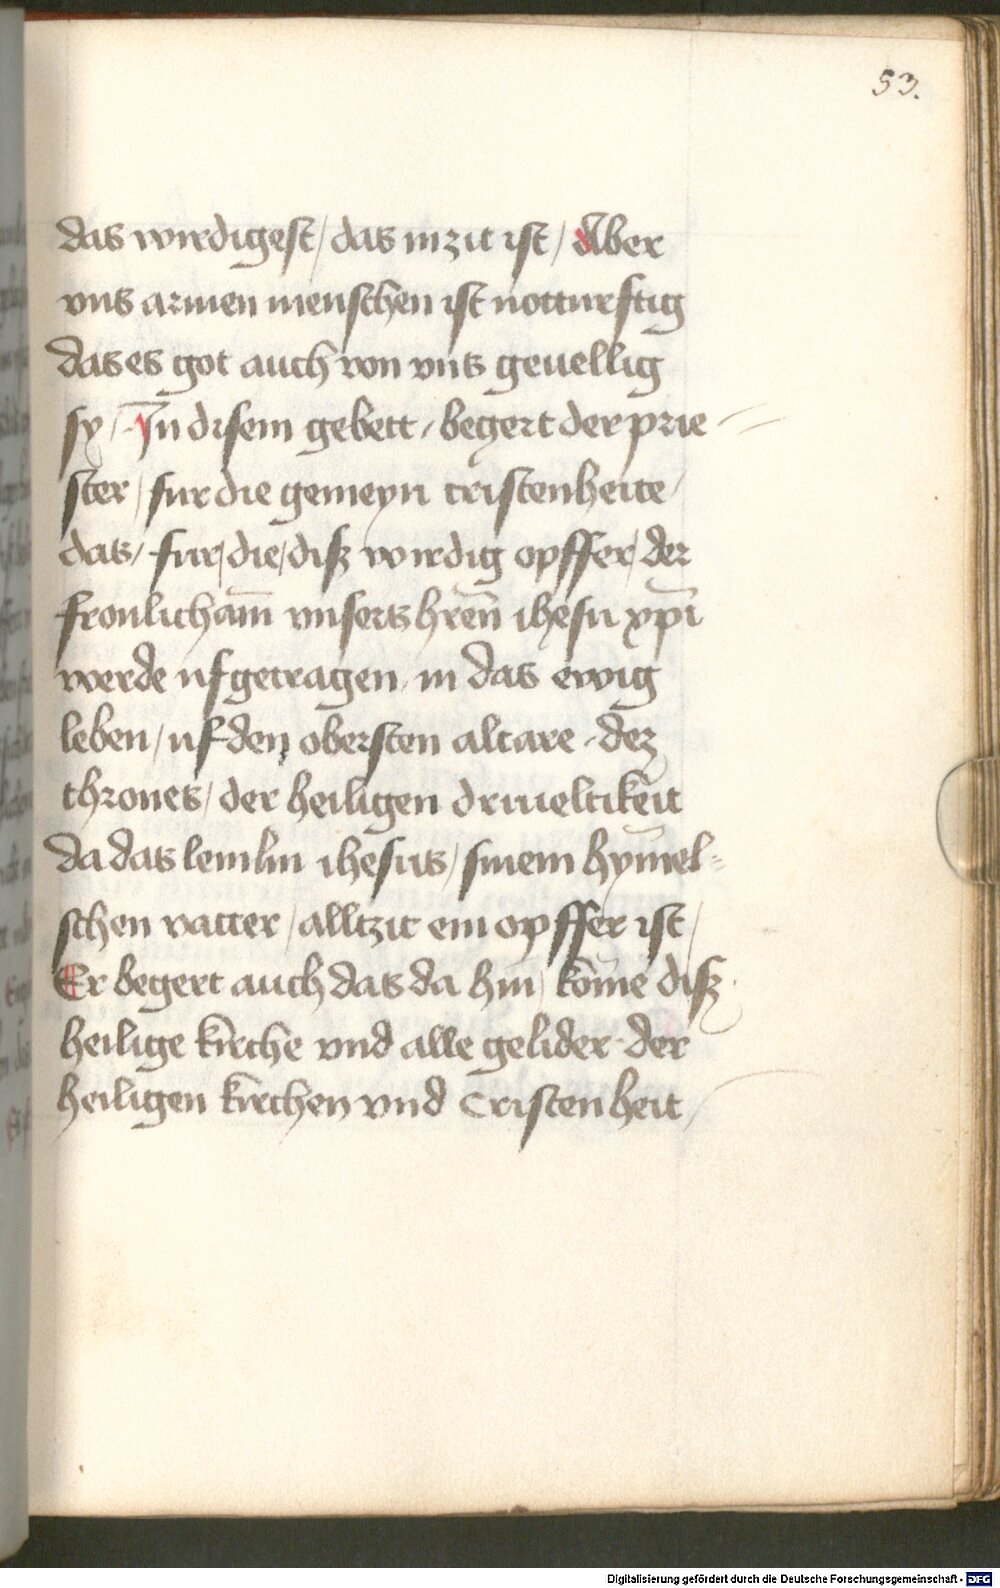 53.
das wirdigest / das inzit ist / Aber
vns armen menschen ist notturftig
das es got auch von vns geuellig
sy / In disem gebett / begert der prie
ster / fur die gemeyn cristenheite /
das / fur / die / disz wirdig opffer / der
fronlicham̄ vnsers hrēn ihesu xp̄i
werde ufgetragen / in das ewig
leben / uf den obersten altare / dez
thrones / der heiligen driueltikeit
da das lemlin ihesus / sinem hym̄el=
schen vatter / alltzit ein opffer ist /
Er begert auch das da hin / kom̄e disz
heilige kirche vnd alle gelider der
heiligen kirchen vnd Cristenheit /
Digitalisierung gefördert durch die Deutsche Forschungsgemeinschaft - DFG